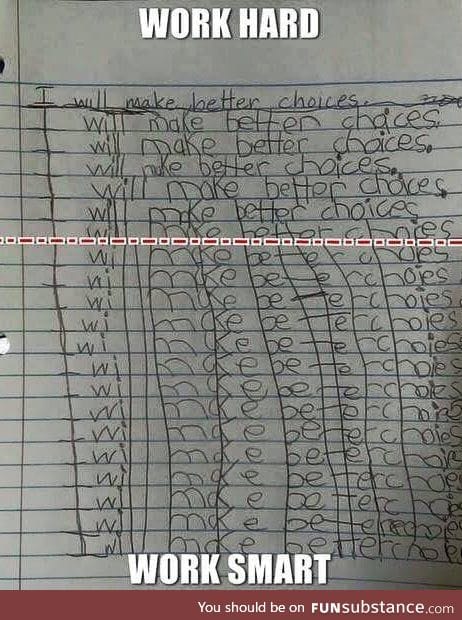 WORK HARD
I will make better choices.
I will make better choices.
I will make better choices.
I will mke better choices.
I will make better choices
I will make better choices
I will make better choies
I will make better choies
I will make better choies
I will make better choies
I will make better choies
I will make better choies
I will make better choies
I will make better choies
I will make better choies
I will make better choies
I will make better choies
I will make better choies
I will make better choies
I will make better
I will make better
WORK SMART
You should be on FUNsubstance.com